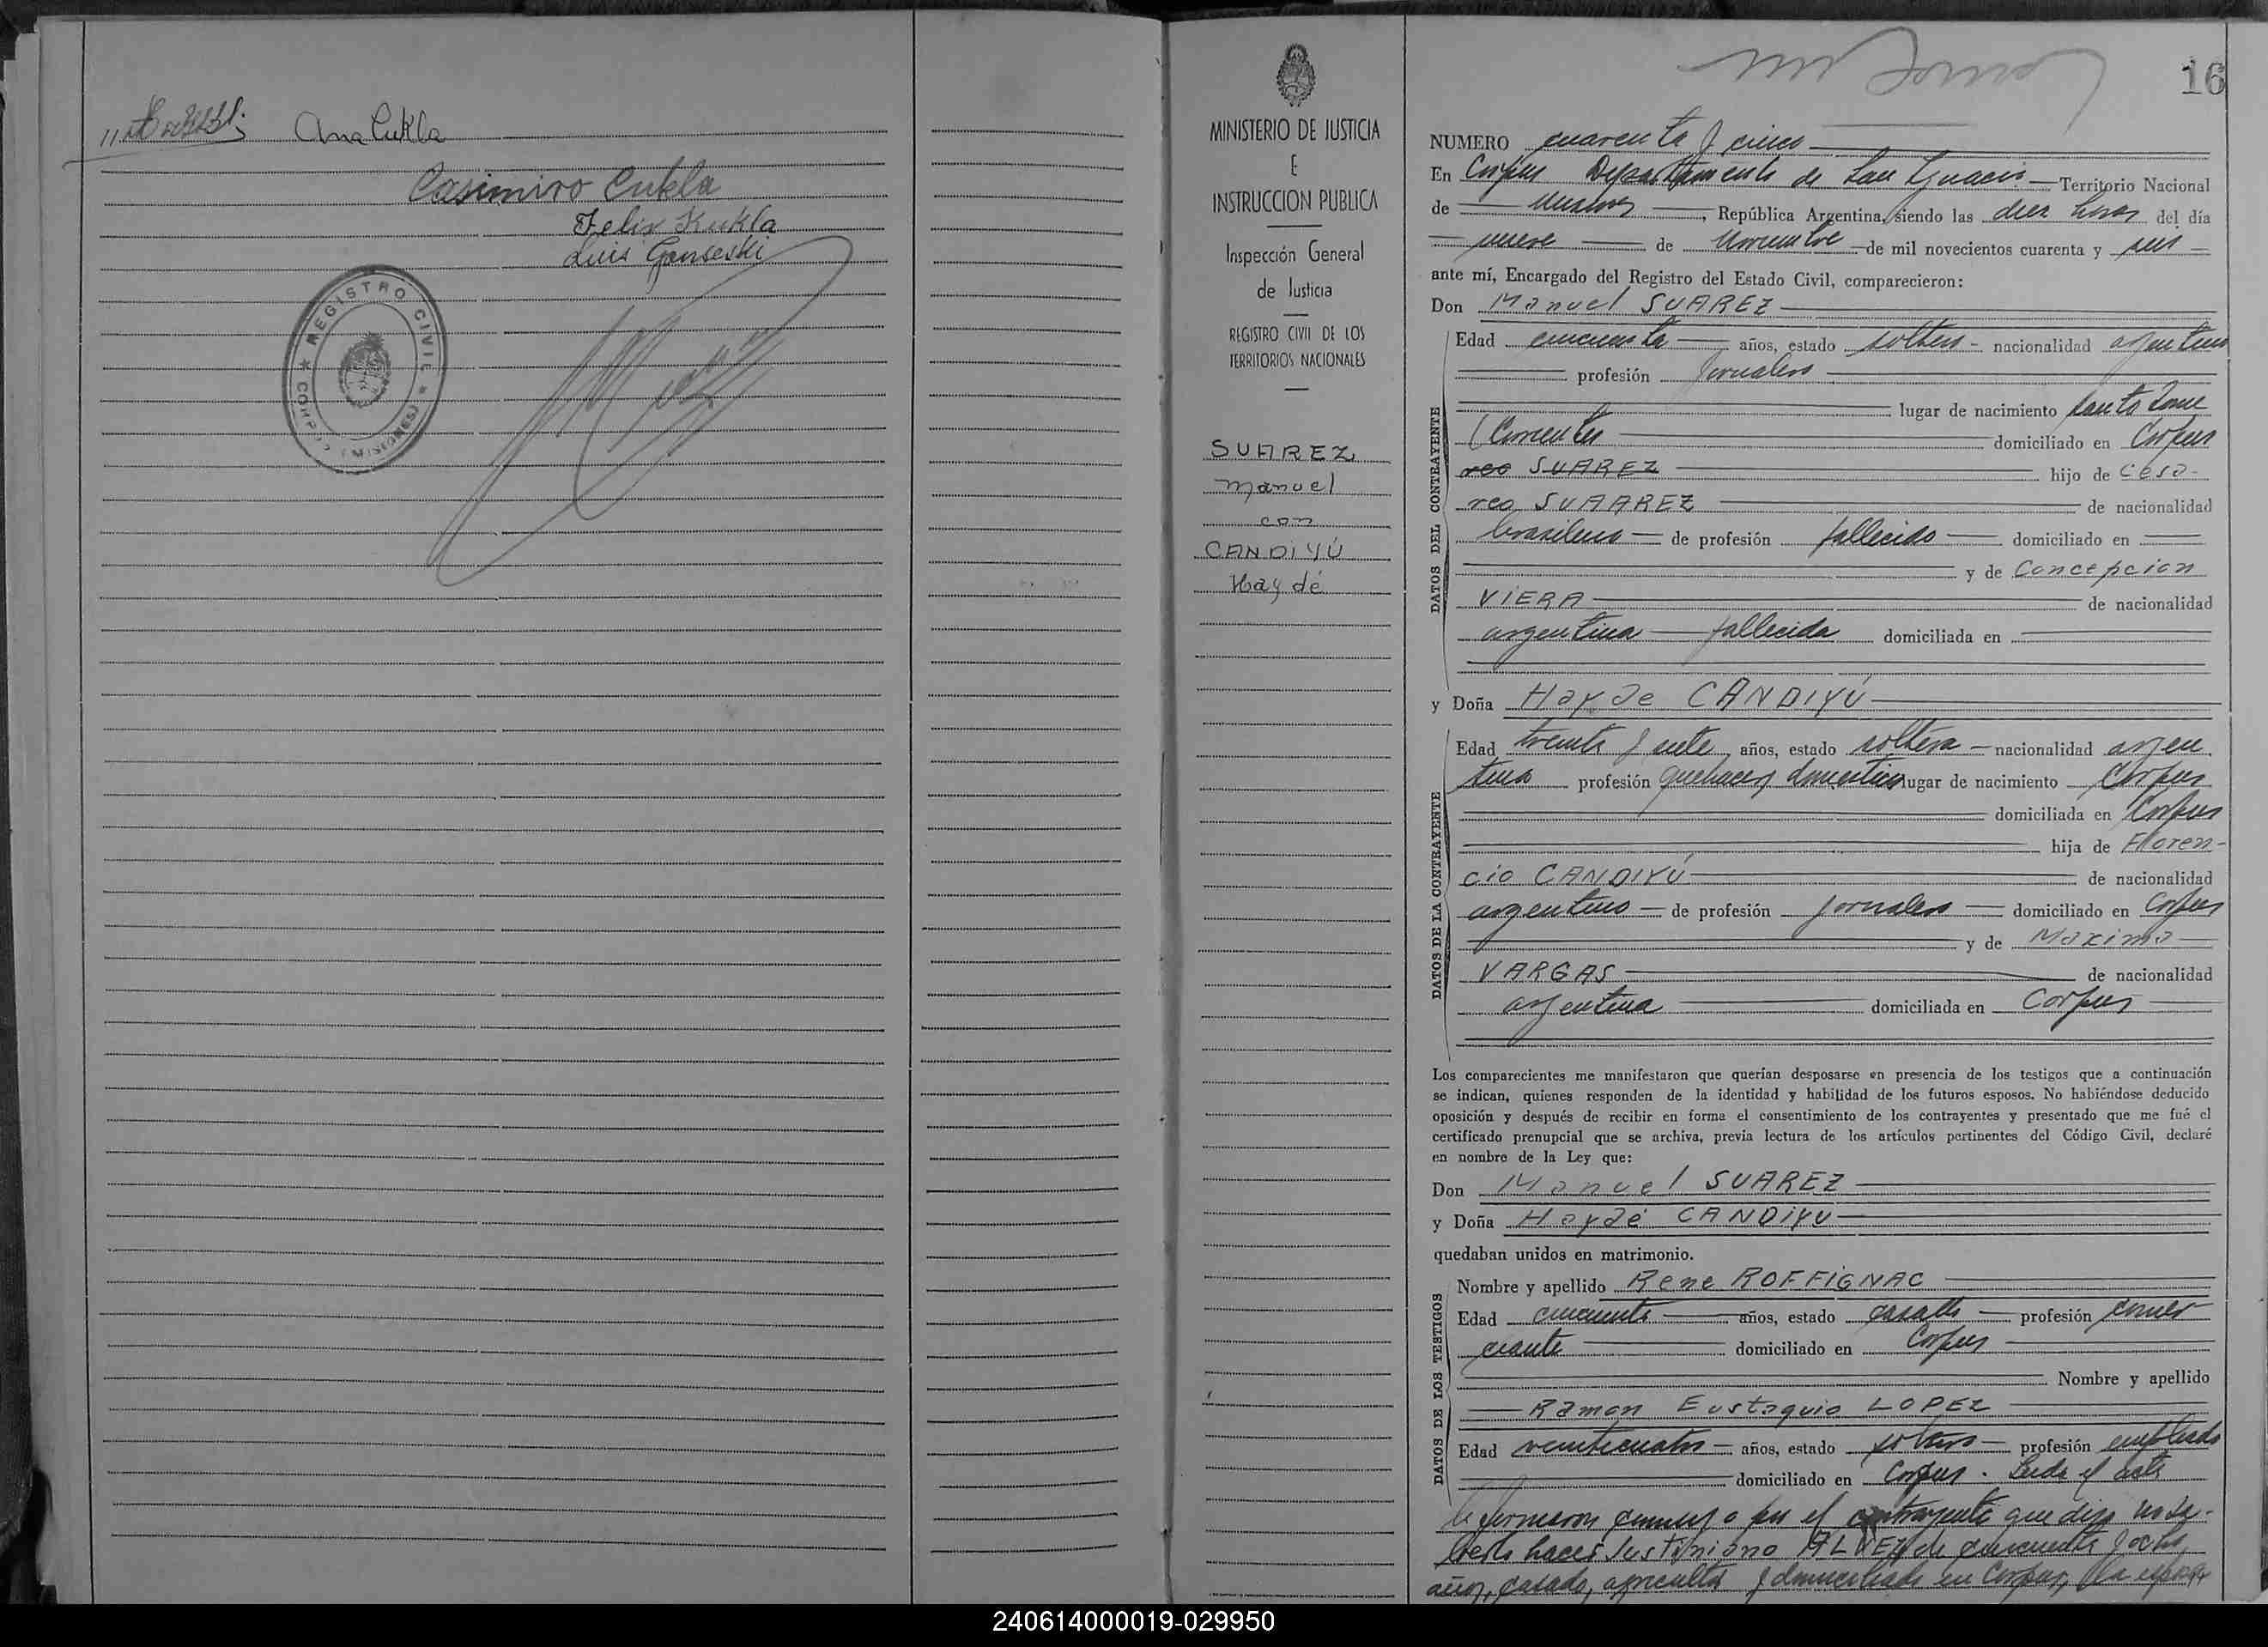 Ana Cukla
Casimiro Cukla
Felix Kukla
Luis Ganseski
REGISTRO CIVIL
CORPUS (MISIONES)
MINISTERIO DE JUSTICIA
E
INSTRUCCION PUBLICA
Inspección General
de Justicia
REGISTRO CIVIL DE LOS
TERRITORIOS NACIONALES
SUAREZ
Manuel
con
CANDIYÚ
Haydé
16
NUMERO cuarenta y cinco
En Corpus Departamento de San Ignacio Territorio Nacional
de Misiones, República Argentina, siendo las diez horas del día
nueve de Noviembre de mil novecientos cuarenta y seis
ante mí, Encargado del Registro del Estado Civil, comparecieron:
Don Manuel SUAREZ
DATOS DEL CONTRAYENTE
Edad cincuenta años, estado soltero nacionalidad argentino
profesión Jornalero
lugar de nacimiento Santo Tome
(Corrientes domiciliado en Corpus
reo SUAREZ hijo de Cesa-
reo SUAAREZ de nacionalidad
brasileno de profesión fallecido domiciliado en
y de Concepcion
VIERA de nacionalidad
argentina fallecida domiciliada en
y Doña Hayde CANDIYÚ
DATOS DE LA CONTRAYENTE
Edad treinta y siete años, estado soltera nacionalidad argen
tina profesión quehacer domestico lugar de nacimiento Corpus
domiciliada en Corpus
hija de Floren-
cio CANDIYÚ de nacionalidad
argentino de profesión jornalero domiciliado en Corpus
y de Maxima
VARGAS de nacionalidad
argentina domiciliada en Corpus
Los comparecientes me manifestaron que querían desposarse en presencia de los testigos que a continuación
se indican, quienes responden de la identidad y habilidad de los futuros esposos. No habiéndose deducido
oposición y después de recibir en forma el consentimiento de los contrayentes y presentado que me fué el
certificado prenupcial que se archiva, previa lectura de los artículos pertinentes del Código Civil, declaré
en nombre de la Ley que:
Don Manuel SUAREZ
y Doña Haydé CANDIYU
quedaban unidos en matrimonio.
DATOS DE LOS TESTIGOS
Nombre y apellido Rene ROFFIGNAC
Edad cincuenta años, estado casado profesión comer
ciante domiciliado en Corpus
Nombre y apellido
Ramon Eustaquio LOPEZ
Edad veinticuatro años, estado soltero profesión empleado
domiciliado en Corpus. Leida el acta
la firmaron conmigo por el contrayente que dijo no sa-
berlo hacer Justiniano ALVEZ de cincuenta y ocho
años, casado, agricultor y domiciliado en Corpus, la esposa
240614000019-029950